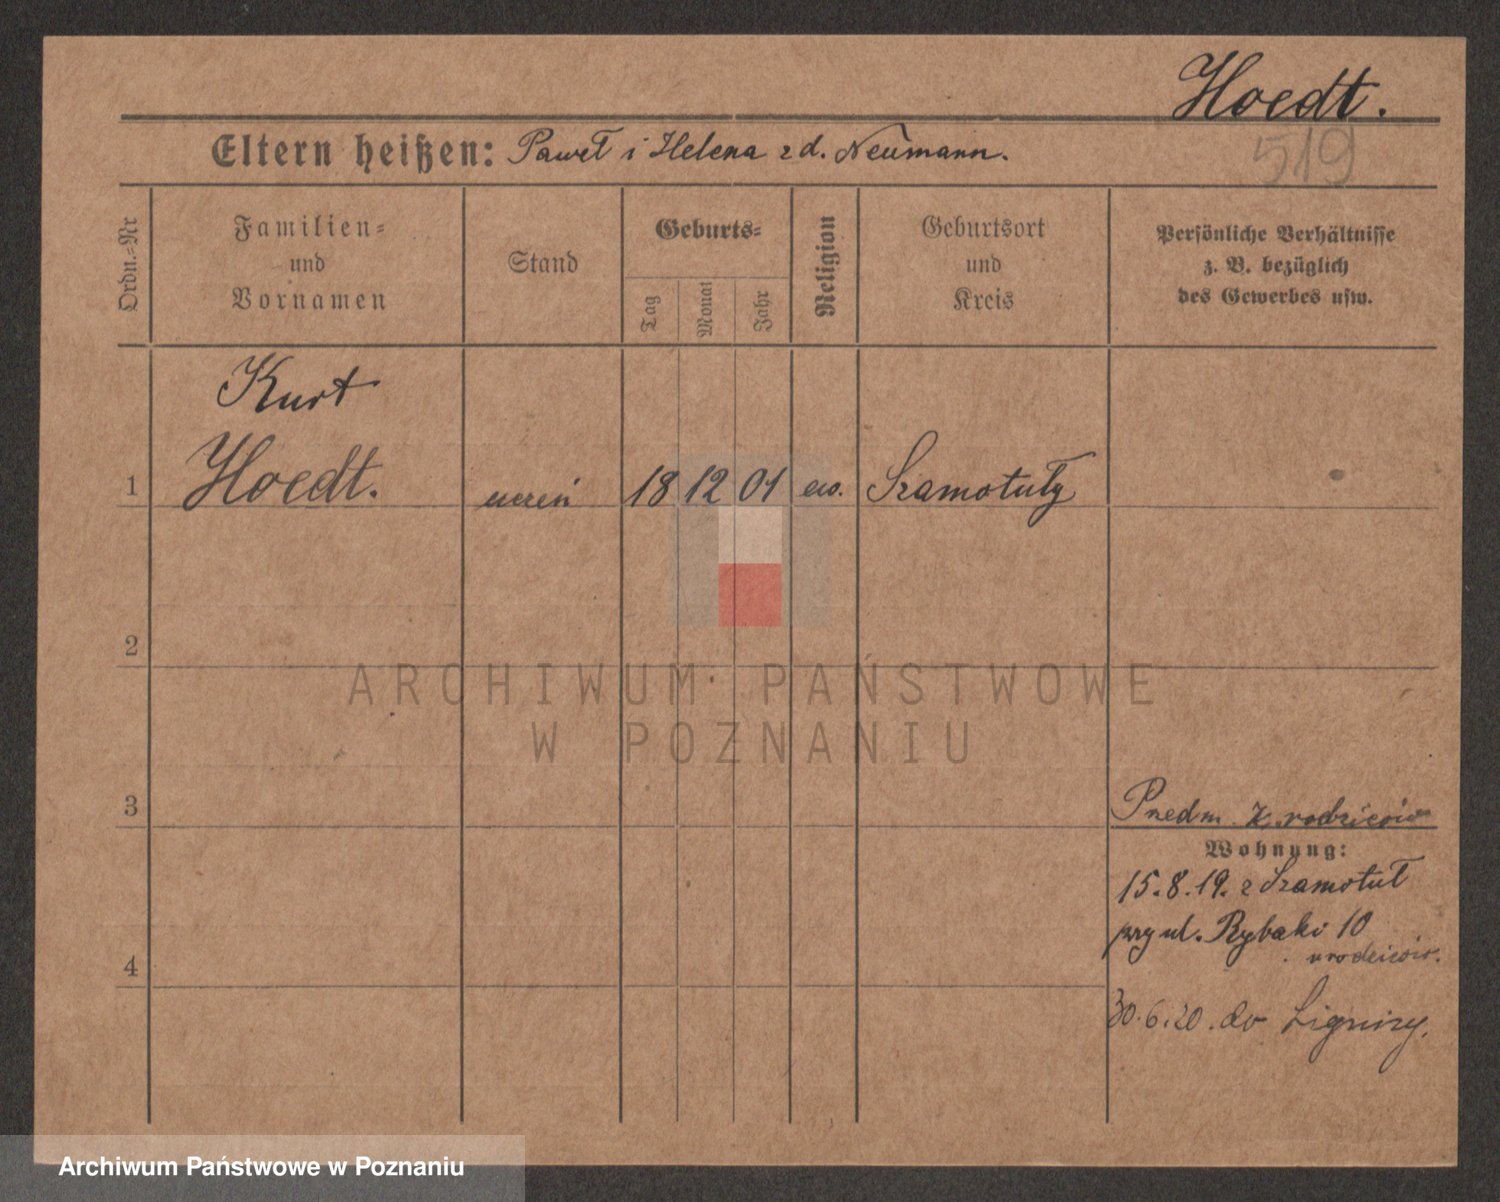 Hoedt.
519
Eltern heißen: Paweł i Helena zd. Neumann.
Ordn.-Nr
Familien-
und
Vornamen
Stand
Geburts-
Tag
Monat
Jahr
Religion
Geburtsort
und
Kreis
Persönliche Verhältnisse
z. B. bezüglich
des Gewerbes usw.
Kurt
1 Hoedt. uczeń 18 12 01 ew. Szamotuły
2
ARCHIWUM PAŃSTWOWE
W POZNANIU
3 rodziców
Wohnung:
15.8.19. z Szamotuł
przy ul. Rybaki 10
u rodziców.
4
30.6.20. do Lignicy.
Archiwum Państwowe w Poznaniu